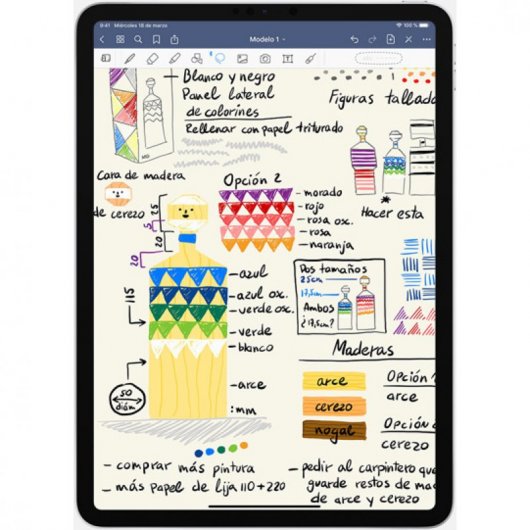 9:41 Miércoles 18 de marzo
100 %
Modelo 1
Blanco y negro
Panel lateral
de colorines
Rellenar con papel triturado
Figuras tallada
Cara de madera
de cerezo
Opción 2
morado
rojo
rosa osc.
rosa
naranja
25
5
20
20
115
azul
azul osc.
verde osc.
verde
blanco
arce
:mm
50
diám.
Hacer esta
Dos tamaños
25cm
17,5cm
Ambos
¿17,5cm?
Maderas
arce
cerezo
nogal
Opción 1
arce
Opción
cerezo
– comprar más pintura
– más papel de lija 110 + 220
– pedir al carpintero que
guarde restos de ma
de arce y cerezo